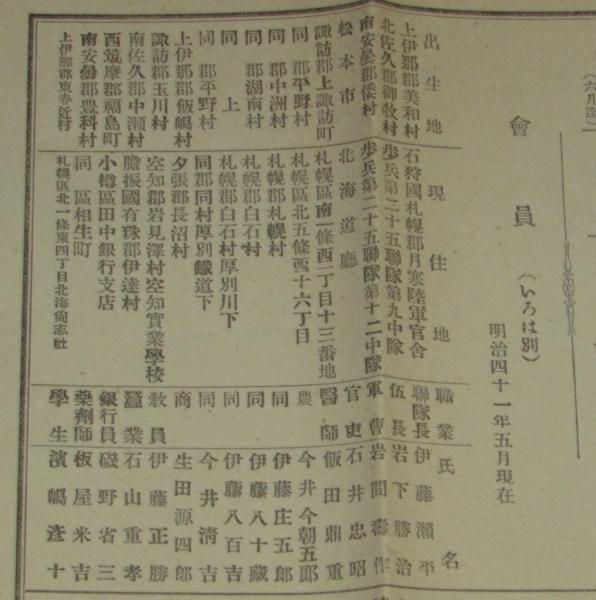 會員（いろは別）
明治四十一年五月現在
出生地 現住地 職業 氏名
上伊那郡美和村 石狩國札幌郡月寒陸軍官舍 聯隊長 伊藤瀨平
北佐久郡御牧村 步兵第二十五聯隊第九中隊 伍長 岩下勝治
南安曇郡倭村 步兵第二十五聯隊第十二中隊 軍曹 岩間壽作
松本市 北海道廳 官吏 石井忠昭
諏訪郡上諏訪町 札幌區南一條西二丁目十三番地 醫師 飯田鼎重
同郡平野村 札幌區北五條西十六丁目 農 今井今朝五郎
同郡中洲村 札幌郡札幌村 同 伊藤庄五郎
同郡湖南村 札幌郡白石村 同 伊藤八十藏
同上 札幌郡白石村厚別川下 同 伊藤八百吉
同郡平野村 同郡同村厚別鐵道下 同 今井淸吉
上伊那郡飯嶋村 夕張郡長沼村 商 生田源四郎
諏訪郡玉川村 空知郡岩見澤村空知實業學校 敎員 伊藤正勝
南佐久郡中瀨村 膽振國有珠郡伊達村 蠶業 石山重孝
西筑摩郡福島町 小樽區田中銀行支店 銀行員 磯野省三
南安曇郡豊科村 同區相生町 藥劑師 板屋米吉
上伊那郡東春近村 札幌區北一條東四丁目北海尙志社 學生 濱嶋彥十